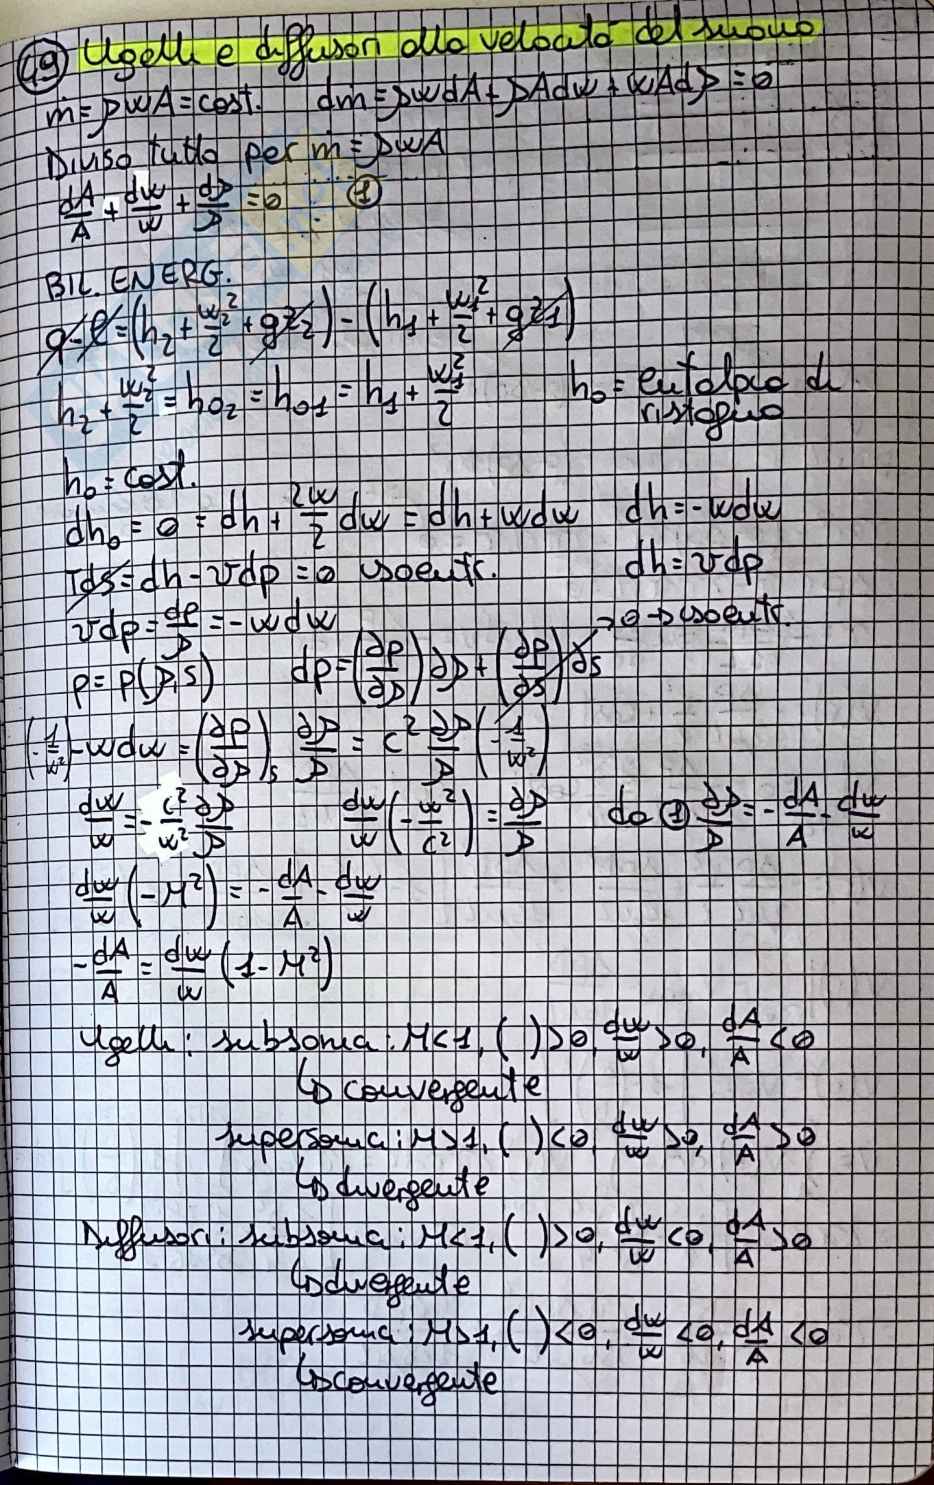 49 Ugelli e diffusori alla velocità del suono
ṁ=ρwA=cost. dm=ρwdA+ρAdw+wAdρ=0
Diviso tutto per ṁ=ρwA
dA/A + dw/w + dρ/ρ = 0 ①
BIL. ENERG.
q-l=(h₂+w₂²/2+gz₂)-(h₁+w₁²/2+gz₁)
h₂+w₂²/2=h₀₂=h₀₁=h₁+w₁²/2 h₀=entalpia di
ristagno
h₀=cost.
dh₀=0=dh+2w/2 dw=dh+wdw dh=-wdw
Tds=dh-vdp=0 isoentr. dh=vdp
vdp=dp/ρ=-wdw →0→isoentr.
p=p(ρ,s) dp=(∂p/∂ρ)∂ρ+(∂p/∂s)∂s
(-1/w²)-wdw=(∂p/∂ρ)s ∂ρ/ρ=c² ∂ρ/ρ (-1/w²)
dw/w=-c²/w² ∂ρ/ρ dw/w(-w²/c²)=∂ρ/ρ da ① ∂ρ/ρ=-dA/A-dw/w
dw/w(-M²)=-dA/A-dw/w
-dA/A=dw/w(1-M²)
Ugelli: subsonica: M<1, ( )>0, dw/w>0, dA/A<0
↳convergente
supersonica: M>1, ( )<0, dw/w>0, dA/A>0
↳divergente
Diffusori: subsonica: M<1, ( )>0, dw/w<0, dA/A>0
↳divergente
supersonica: M>1, ( )<0, dw/w<0, dA/A<0
↳convergente